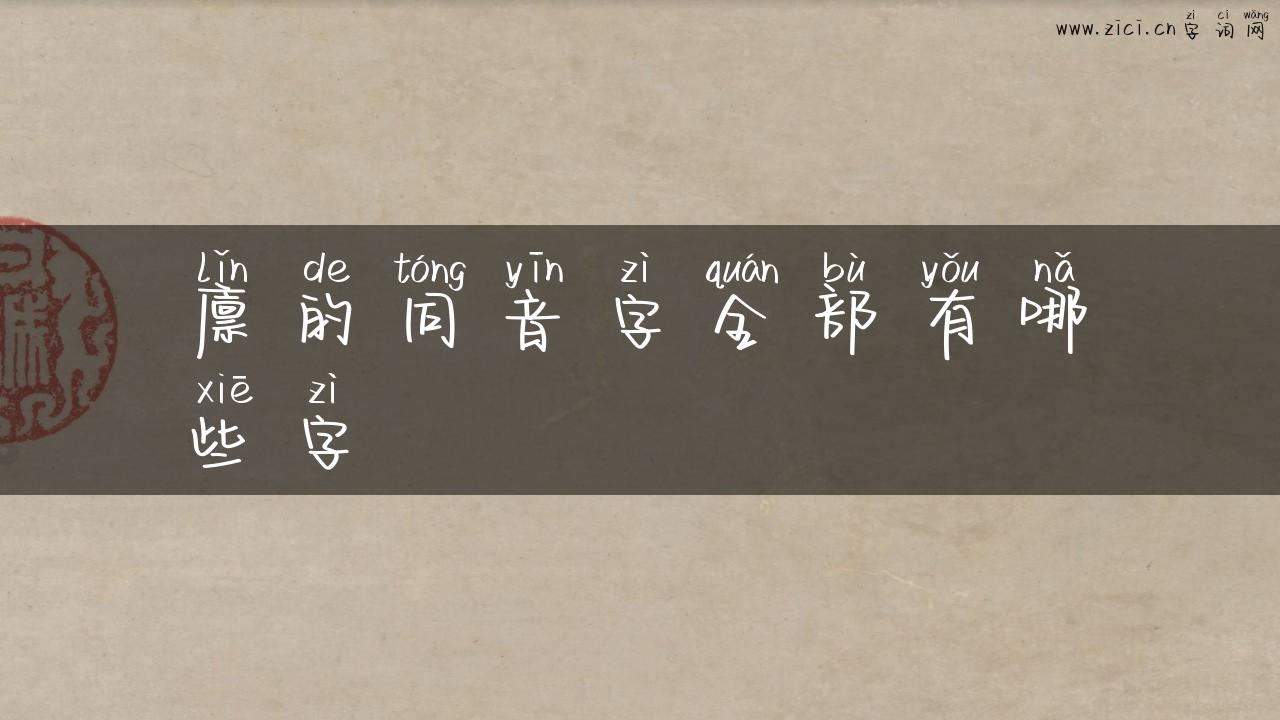 zì cí wǎng
www.zici.cn字词网
lǐn de tóng yīn zì quán bù yǒu nǎ
廪的同音字全部有哪
xiē zì
些字